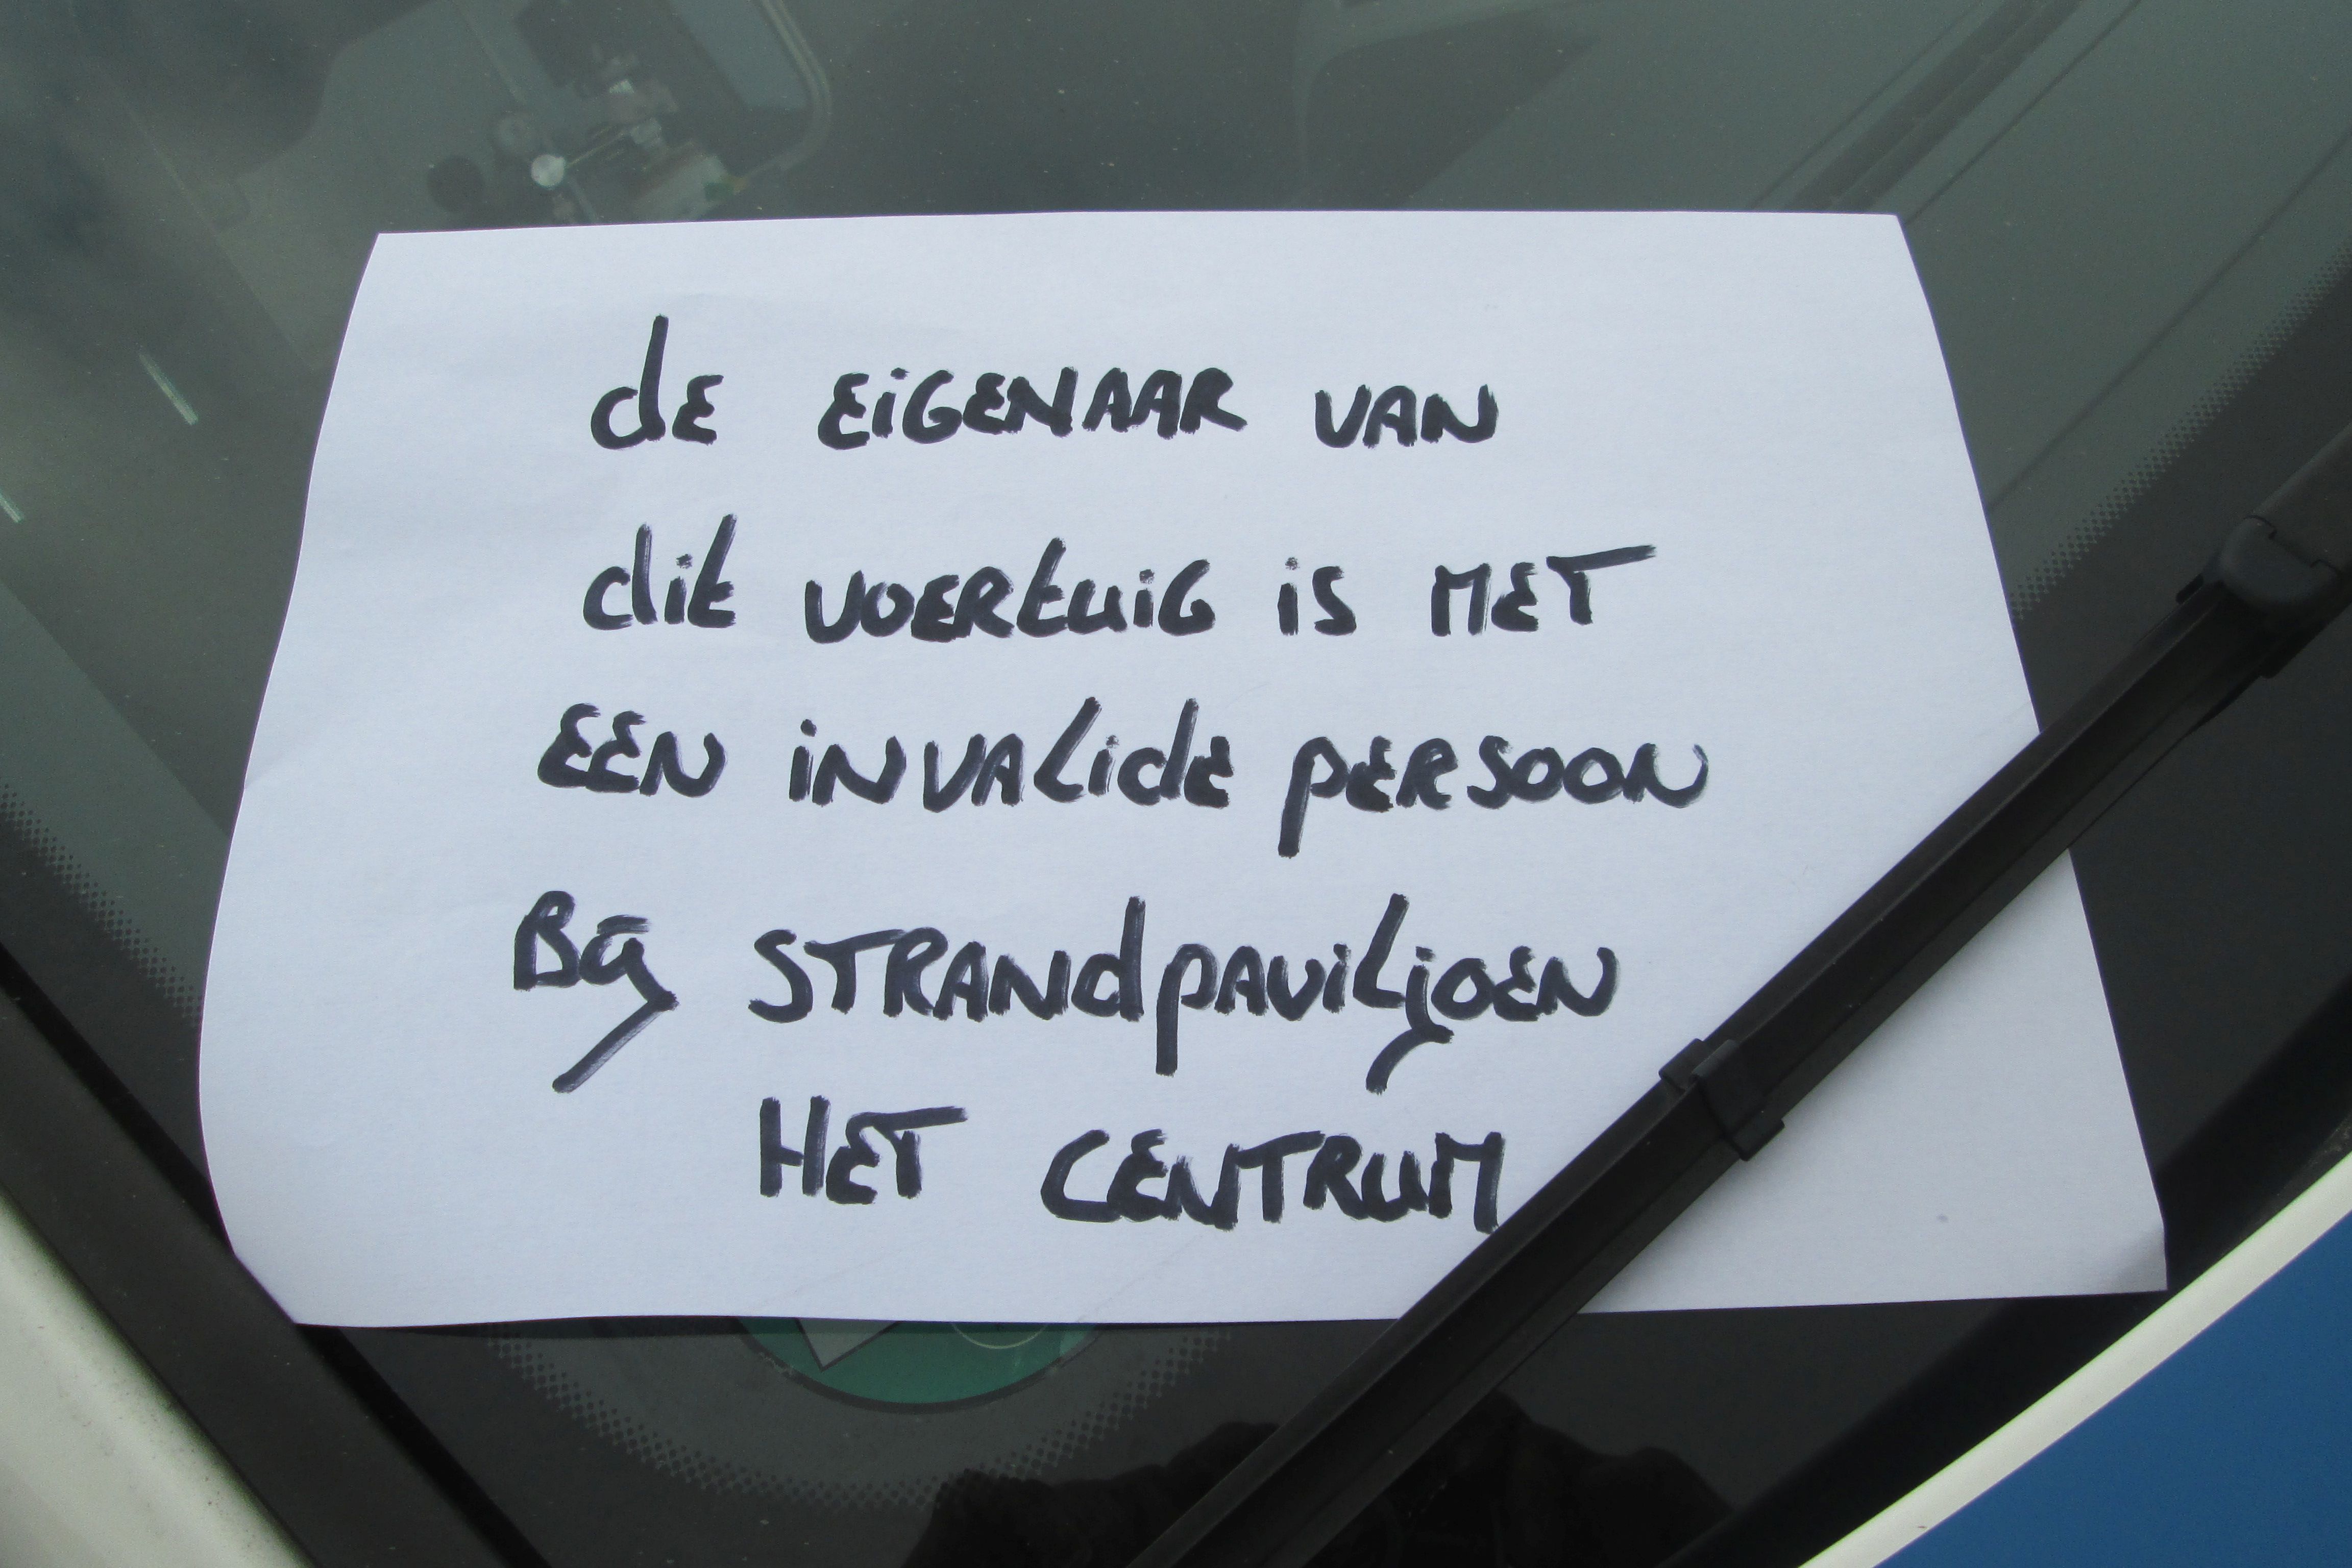 de EiGENAAR VAN
dit VOERtuiG is MET
EEN iNVALidE pERSOON
Bij STRANdpAViLjOEN
HET CENTRUM